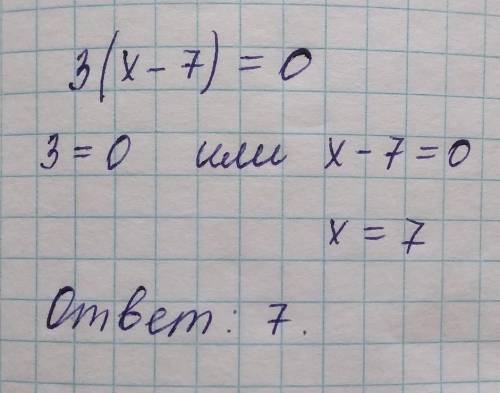 3(x - 7) = 0
3 = 0 или x - 7 = 0
x = 7
Ответ: 7.